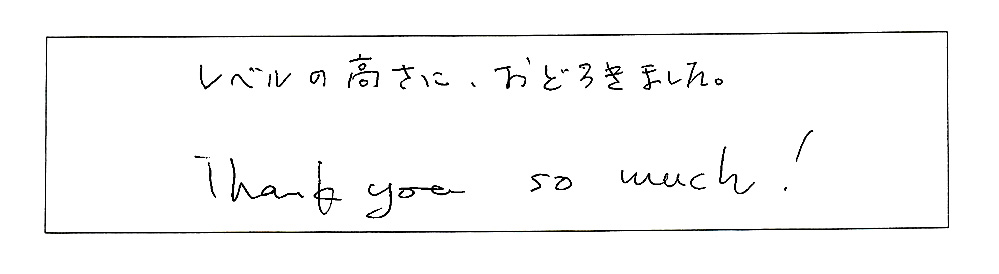 レベルの高さに、おどろきました。
Thank you so much!